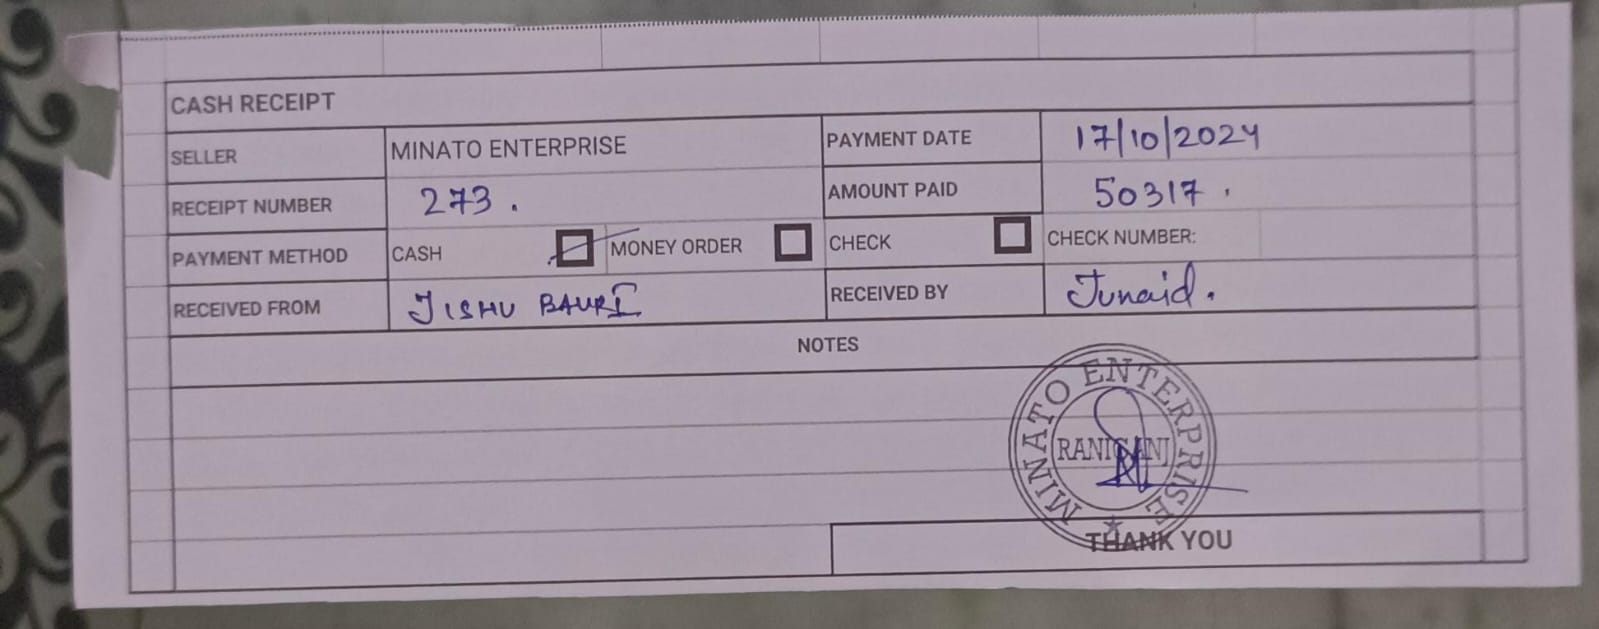 CASH RECEIPT
SELLER MINATO ENTERPRISE PAYMENT DATE 17/10/2024
RECEIPT NUMBER 273. AMOUNT PAID 50317.
PAYMENT METHOD CASH MONEY ORDER CHECK CHECK NUMBER:
RECEIVED FROM JISHU BAURI RECEIVED BY Junaid.
NOTES
MINATO ENTERPRISE
RANIGANJ
THANK YOU